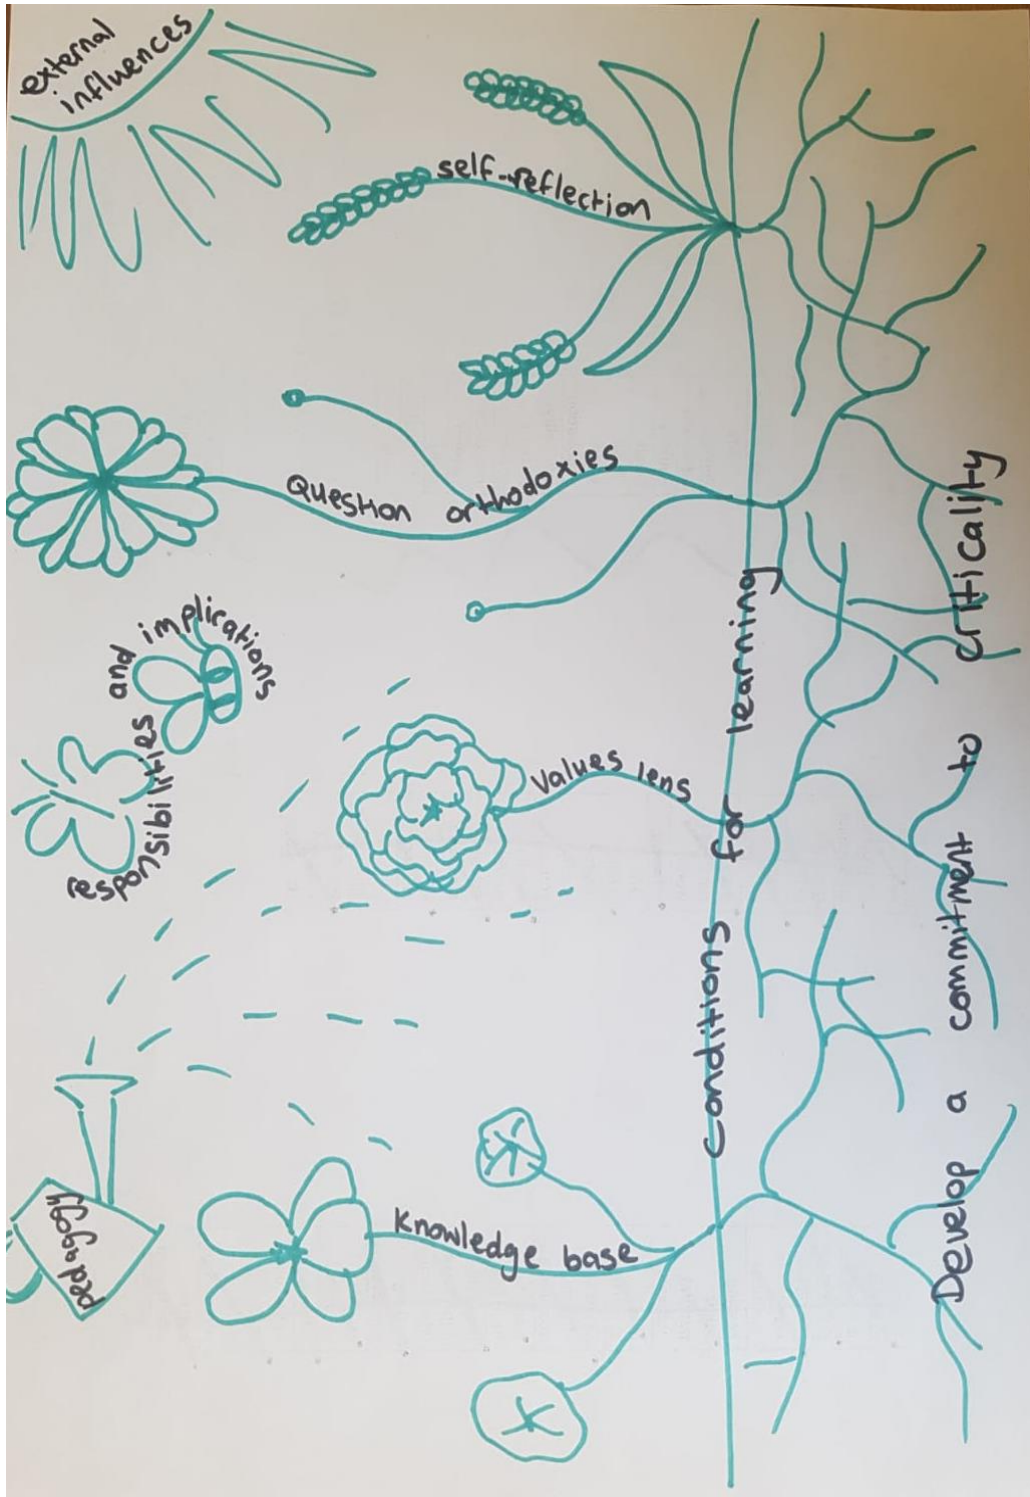 external
influences
self-reflection
Question orthodoxies
responsibilities and implications
values lens
pedagogy
knowledge base
conditions for learning
Develop a commitment to criticality